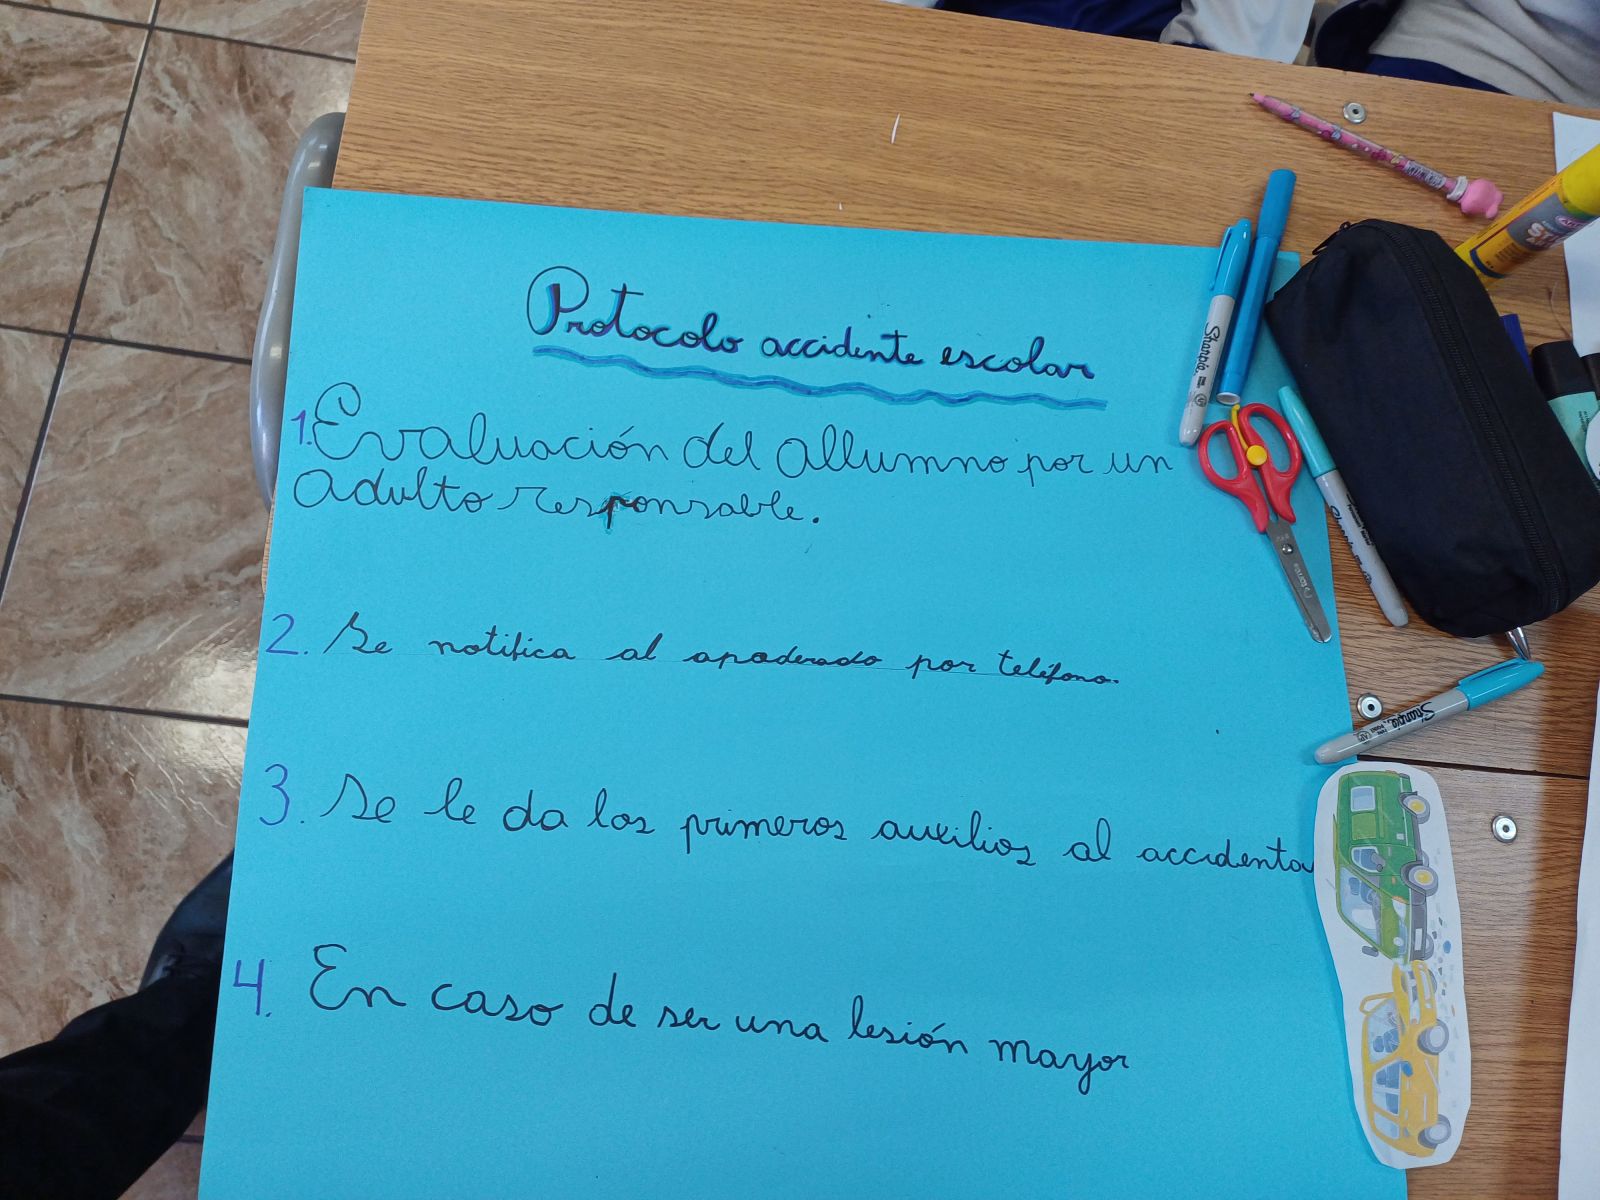 Protocolo accidente escolar
1. Evaluación del allumno por un
adulto responsable.
2. Se notifica al apoderado por teléfono.
3. Se le da los primeros auxilios al accidenta
4. En caso de ser una lesión mayor
Sharpie
Sharpie
Sharpie